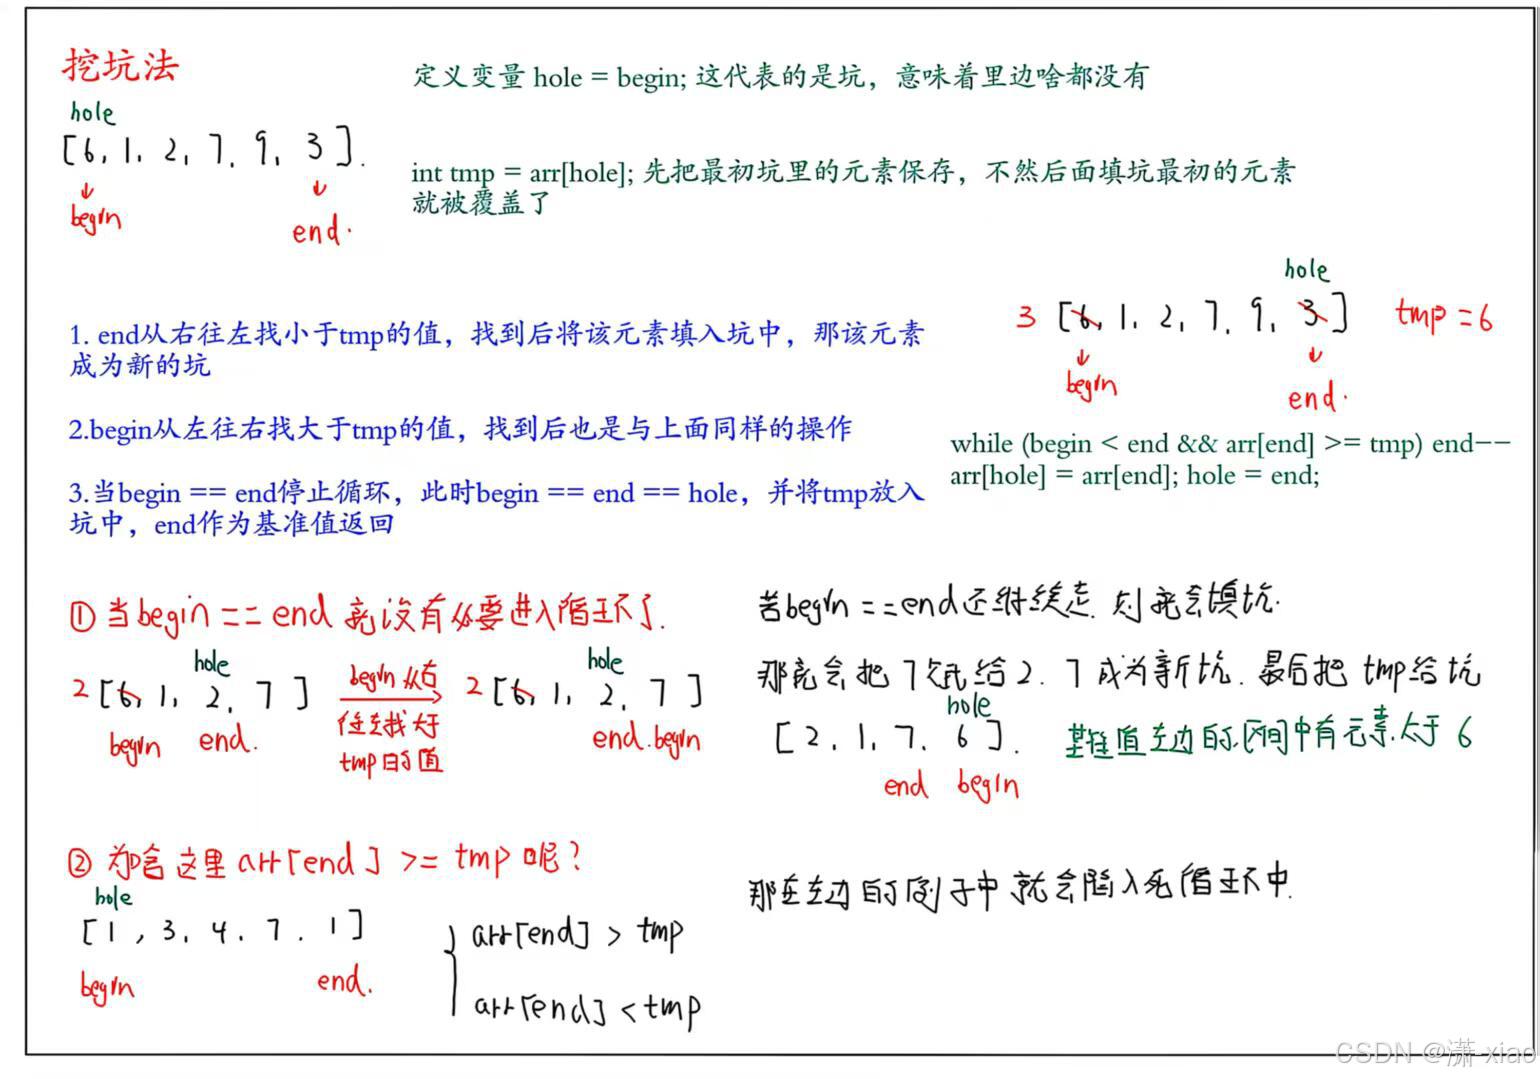 挖坑法
定义变量 hole = begin; 这代表的是坑，意味着里边啥都没有
hole
[6, 1, 2, 7, 9, 3].
begin
end.
int tmp = arr[hole]; 先把最初坑里的元素保存，不然后面填坑最初的元素
就被覆盖了
hole
3 [6, 1, 2, 7, 9, 3] tmp = 6
begin
end.
1. end从右往左找小于tmp的值，找到后将该元素填入坑中，那该元素
成为新的坑
2.begin从左往右找大于tmp的值，找到后也是与上面同样的操作
3.当begin == end停止循环，此时begin == end == hole，并将tmp放入
坑中，end作为基准值返回
while (begin < end && arr[end] >= tmp) end--
arr[hole] = arr[end]; hole = end;
① 当begin == end 就没有必要进入循环了.
hole
2 [6, 1, 2, 7]
begin end.
begin从右
往左找大于
tmp的值
hole
2 [6, 1, 2, 7]
end. begin
若begin ==end还继续走. 则就会填坑.
那就会把7赋给2. 7成为新坑. 最后把tmp给坑
hole
[2, 1, 7, 6].
end begin
基准值左边的区间中有元素大于6
② 为啥这里arr[end] >= tmp呢?
hole
[1, 3, 4, 7, 1]
begin end.
arr[end] > tmp
arr[end] < tmp
那在左边的例子中就会陷入死循环中.
CSDN @潇-xiao